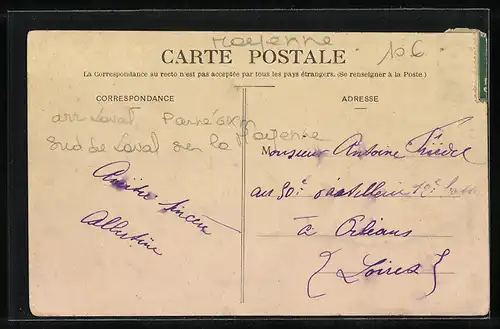 Mayenne
106
CARTE POSTALE
La Correspondance au recto n'est pas acceptée par tous les pays étrangers. (Se renseigner à la Poste.)
CORRESPONDANCE
ADRESSE
arr Laval Parné 6 KM
Sud de Laval sur la Mayenne
Monsieur Antoine
au 30e d'artillerie 10e
à Orléans
(Loiret)
Amitié sincère
Albertine